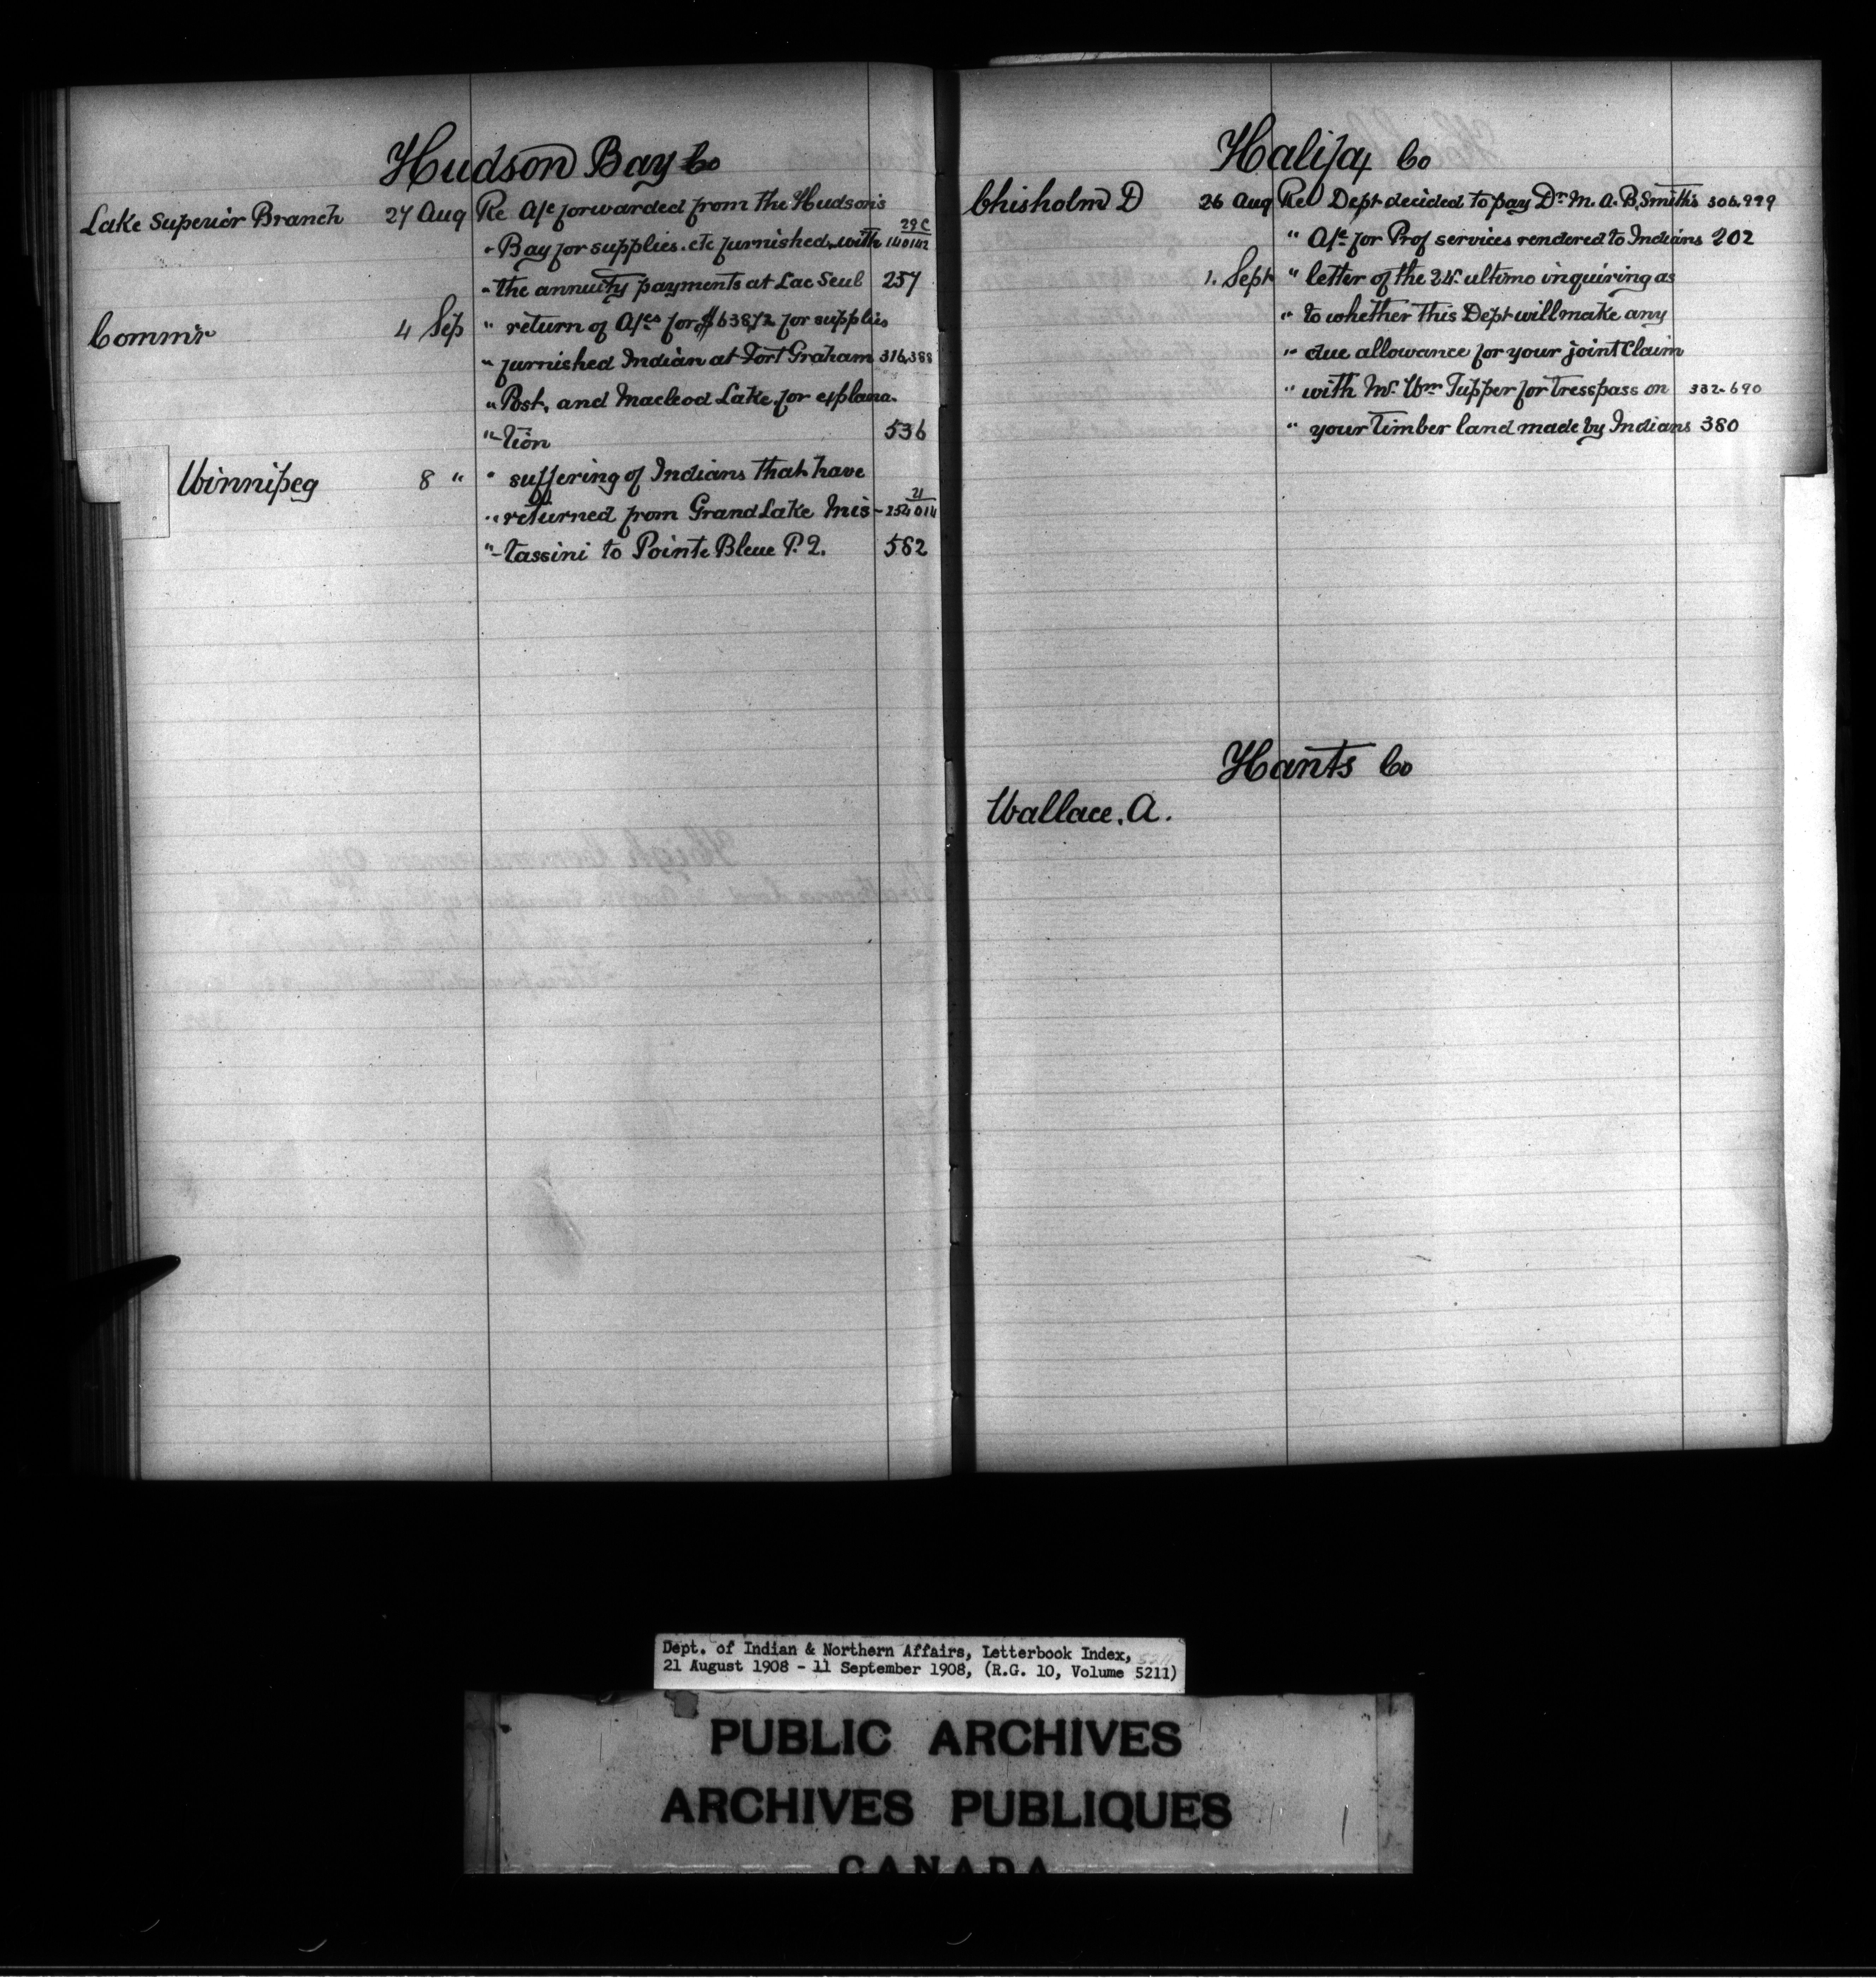 Hudson Bay Co
Lake Superior Branch 27 Aug Re A/c forwarded from the Hudson's
" Bay for supplies. etc furnished with 29C/140142
" the annuity payments at Lac Seul 257
Commr 4 Sep " return of A/cs for $638.72 for supplies
" furnished Indian at Fort Graham 316,388
" Post, and Macleod Lake, for explana-
" tion 536
Winnipeg 8 " " suffering of Indians that have
" returned from Grand Lake Mis- 21/254014
" tassini to Pointe Bleue P.Q. 582
Halifax Co
Chisholm D 26 Aug Re Dept decided to pay Dr. M. A. B. Smith's 306.999
" A/c for Prof services rendered to Indians 202
1. Sept " letter of the 24th ultimo inquiring as
" to whether this Dept will make any
" due allowance for your joint Claim
" with Mr. Wm Tupper for Tresspass on 332-690
" your Timber land made by Indians 380
Hants Co
Wallace, A.
Dept. of Indian & Northern Affairs, Letterbook Index,
21 August 1908 - 11 September 1908, (R.G. 10, Volume 5211)
PUBLIC ARCHIVES
ARCHIVES PUBLIQUES
CANADA